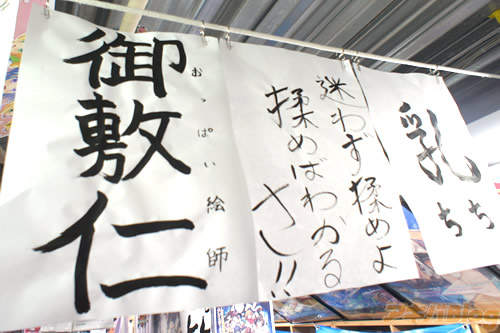 乳
ちち
迷わず揉めよ
揉めばわかる
さー!!
おっぱい絵師
御敷仁